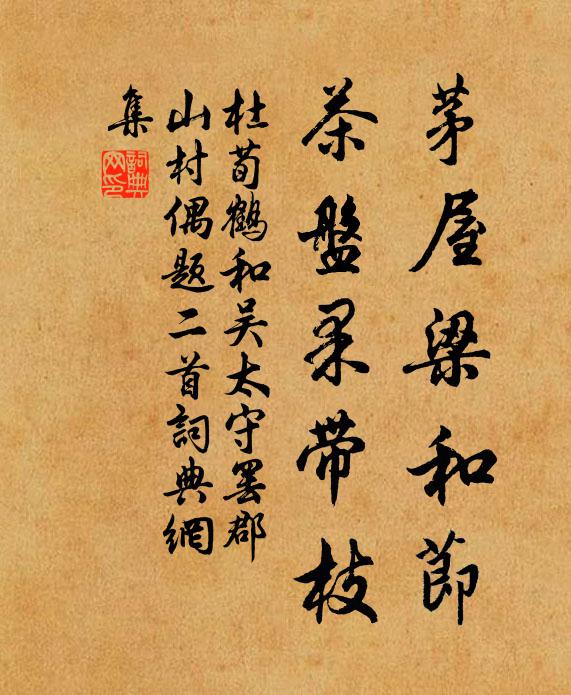 茅屋梁和節
茶盤果帶枝
杜荀鶴和吴太守罢郡
山村偶题二首詞典網
集
詞典网印